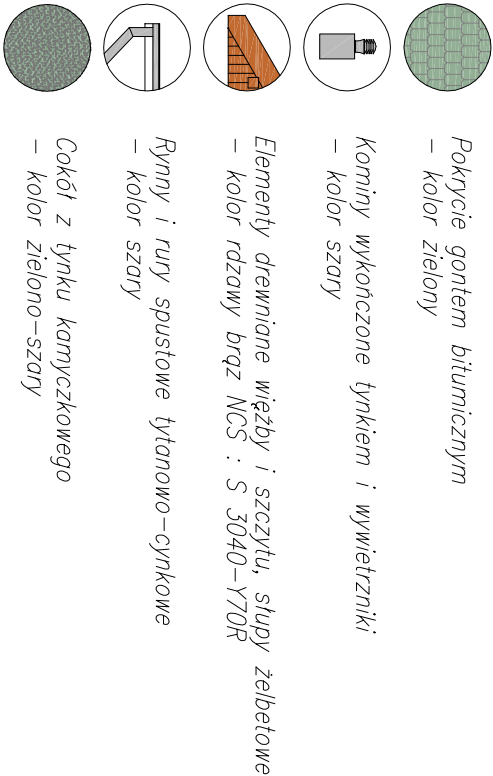 Pokrycie gontem bitumicznym
– kolor zielony
Kominy wykończone tynkiem i wywietrzniki
– kolor szary
Elementy drewniane więźby i szczytu, słupy żelbetowe
– kolor rdzawy brąz NCS : S 3040–Y70R
Rynny i rury spustowe tytanowo–cynkowe
– kolor szary
Cokół z tynku kamyczkowego
– kolor zielono–szary